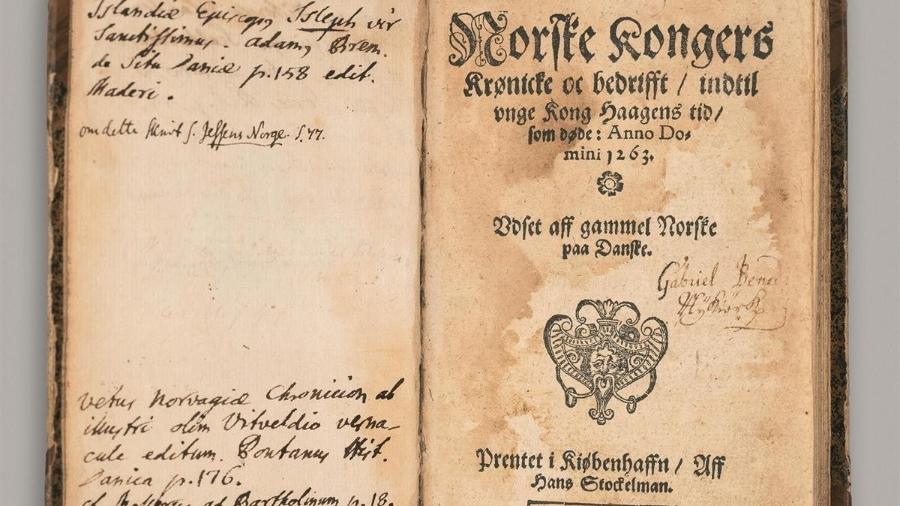 Islandiæ Episcopo Isleph vir
Sanctissimus. Adam, Brem.
de Situ Daniæ p. 158 edit.
Maderi.
om dette skrivt s. Jessens Norge. S. 77.
vetus Norvagiæ Chronicion ab
illustri olim Vitveldio verna-
cule editum. Pontanus Hist.
Danica p. 176.
ad Bartholinum p. 18.
Norske Kongers
Krønicke oc bedrifft / indtil
vnge Kong Haagens tid/
som døde: Anno Do-
mini 1263.
Vdset aff gammel Norske
paa Danske.
Gabriel
Prentet i Kiøbenhaffn / Aff
Hans Stockelman.